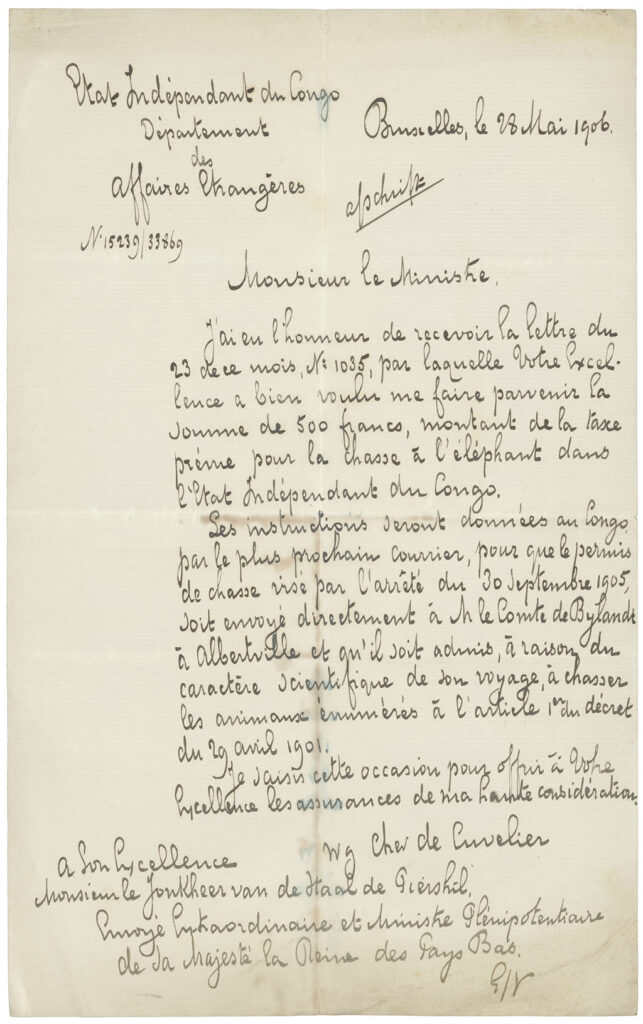 Etat Indépendant du Congo
Département
des
Affaires Etrangères
N° 15239/33869
Bruxelles, le 28 Mai 1906.
afschrift
Monsieur le Ministre,
J'ai eu l'honneur de recevoir la lettre du
23 de ce mois, N° 1035, par laquelle Votre Excel-
lence a bien voulu me faire parvenir la
somme de 500 francs, montant de la taxe
prévue pour la chasse à l'éléphant dans
l'Etat Indépendant du Congo.
Les instructions seront données au Congo,
par le plus prochain courrier, pour que le permis
de chasse visé par l'arrêté du 30 Septembre 1905,
soit envoyé directement à M le Comte de Bylandt
à Albertville et qu'il soit admis, à raison du
caractère scientifique de son voyage, à chasser
les animaux énumérés à l'article 1er du décret
du 29 avril 1901.
Je saisis cette occasion pour offrir à Votre
Excellence les assurances de ma haute considération.
wg Chev de Cuvelier
A Son Excellence
Monsieur le Jonkheer van de Staal de Piershil,
Envoyé Extraordinaire et Ministre Plénipotentiaire
de Sa Majesté la Reine des Pays Bas.